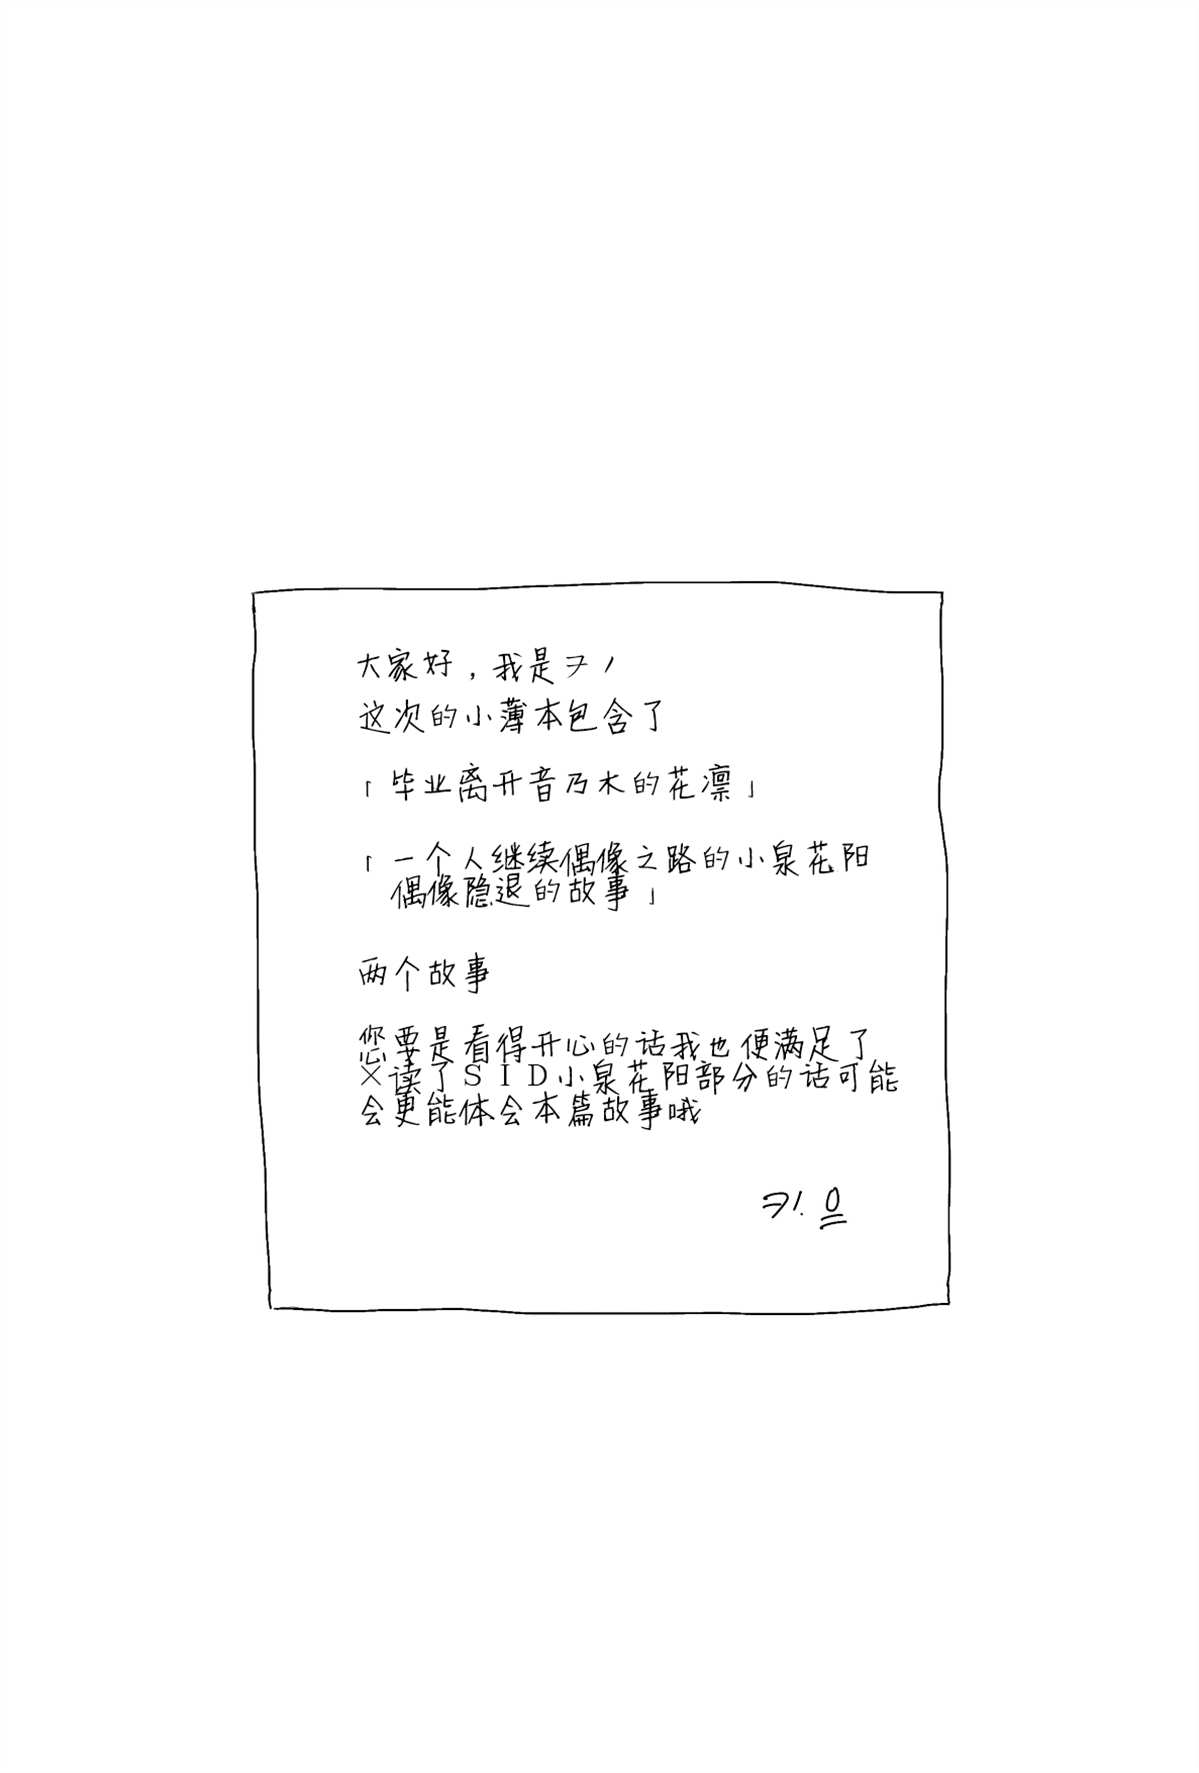 大家好，我是ヲノ
这次的小薄本包含了
「毕业离开音乃木的花凛」
「一个人继续偶像之路的小泉花阳
偶像隐退的故事」
两个故事
您要是看得开心的话我也便满足了
×读了SID小泉花阳部分的话可能
会更能体会本篇故事哦
ヲノ.0